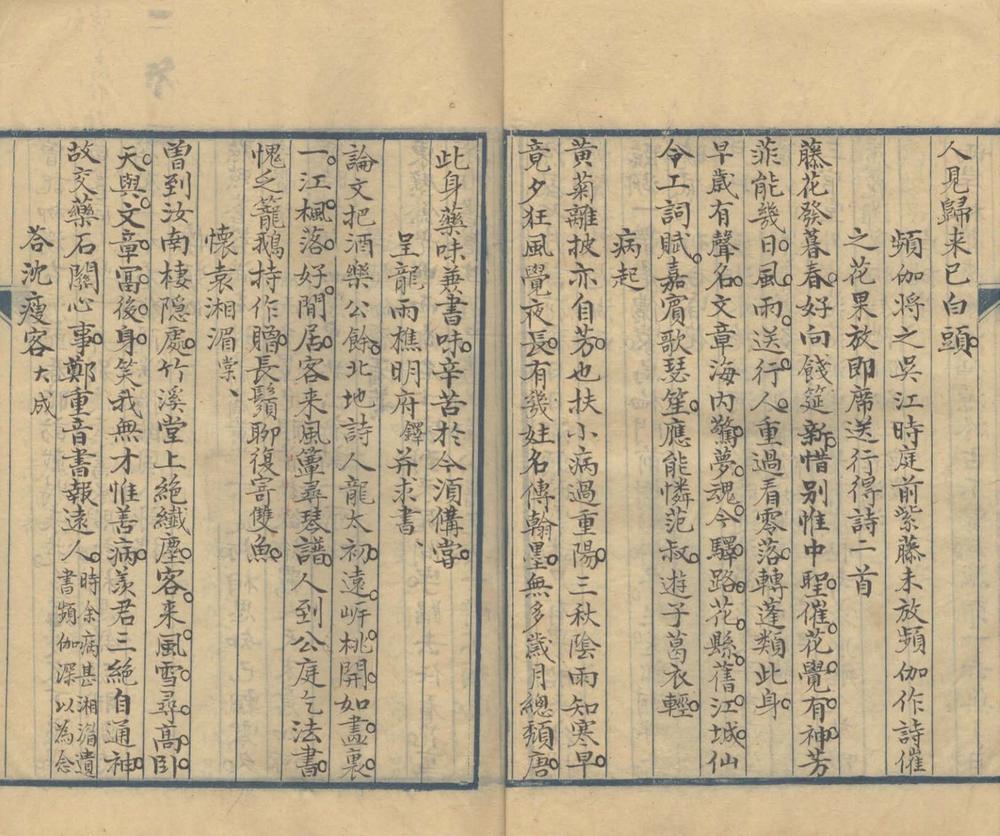 人見歸来已白頭
頻伽將之吳江時庭前紫藤未放頻伽作詩催
之花果放即席送行得詩二首
藤花發暮春好向餞筵新惜別惟中聖催花覺有神芳
菲能幾日風雨送行人重過看零落轉蓬類此身
早歲有聲名文章海內驚夢魂今驛路花縣舊江城仙
令工詞賦嘉賓歌瑟笙應能憐范叔遊子葛衣輕
病起
黄菊離披亦自芳也扶小病過重陽三秋陰雨知寒早
竟夕狂風覺夜長有幾姓名傳翰墨無多歲月總頹唐
此身藥味兼書味辛苦於今須備嘗
呈龍雨樵明府鐸并求書
論文把酒樂公餘北地詩人龍太初遠岍桃開如畫裏
一江楓落好閒居客来風簟尋琴譜人到公庭乞法書
愧乏籠鵝持作贈長鬚聊復寄雙魚
懷袁湘湄棠
曾到汝南棲隱處竹溪堂上絕纖塵客来風雪尋高卧
天與文章富後身笑我無才惟善病羨君三絕自通神
故交藥石關心事鄭重音書報遠人時余病甚湘湄遺書頻伽深以為念
荅沈瘦客大成